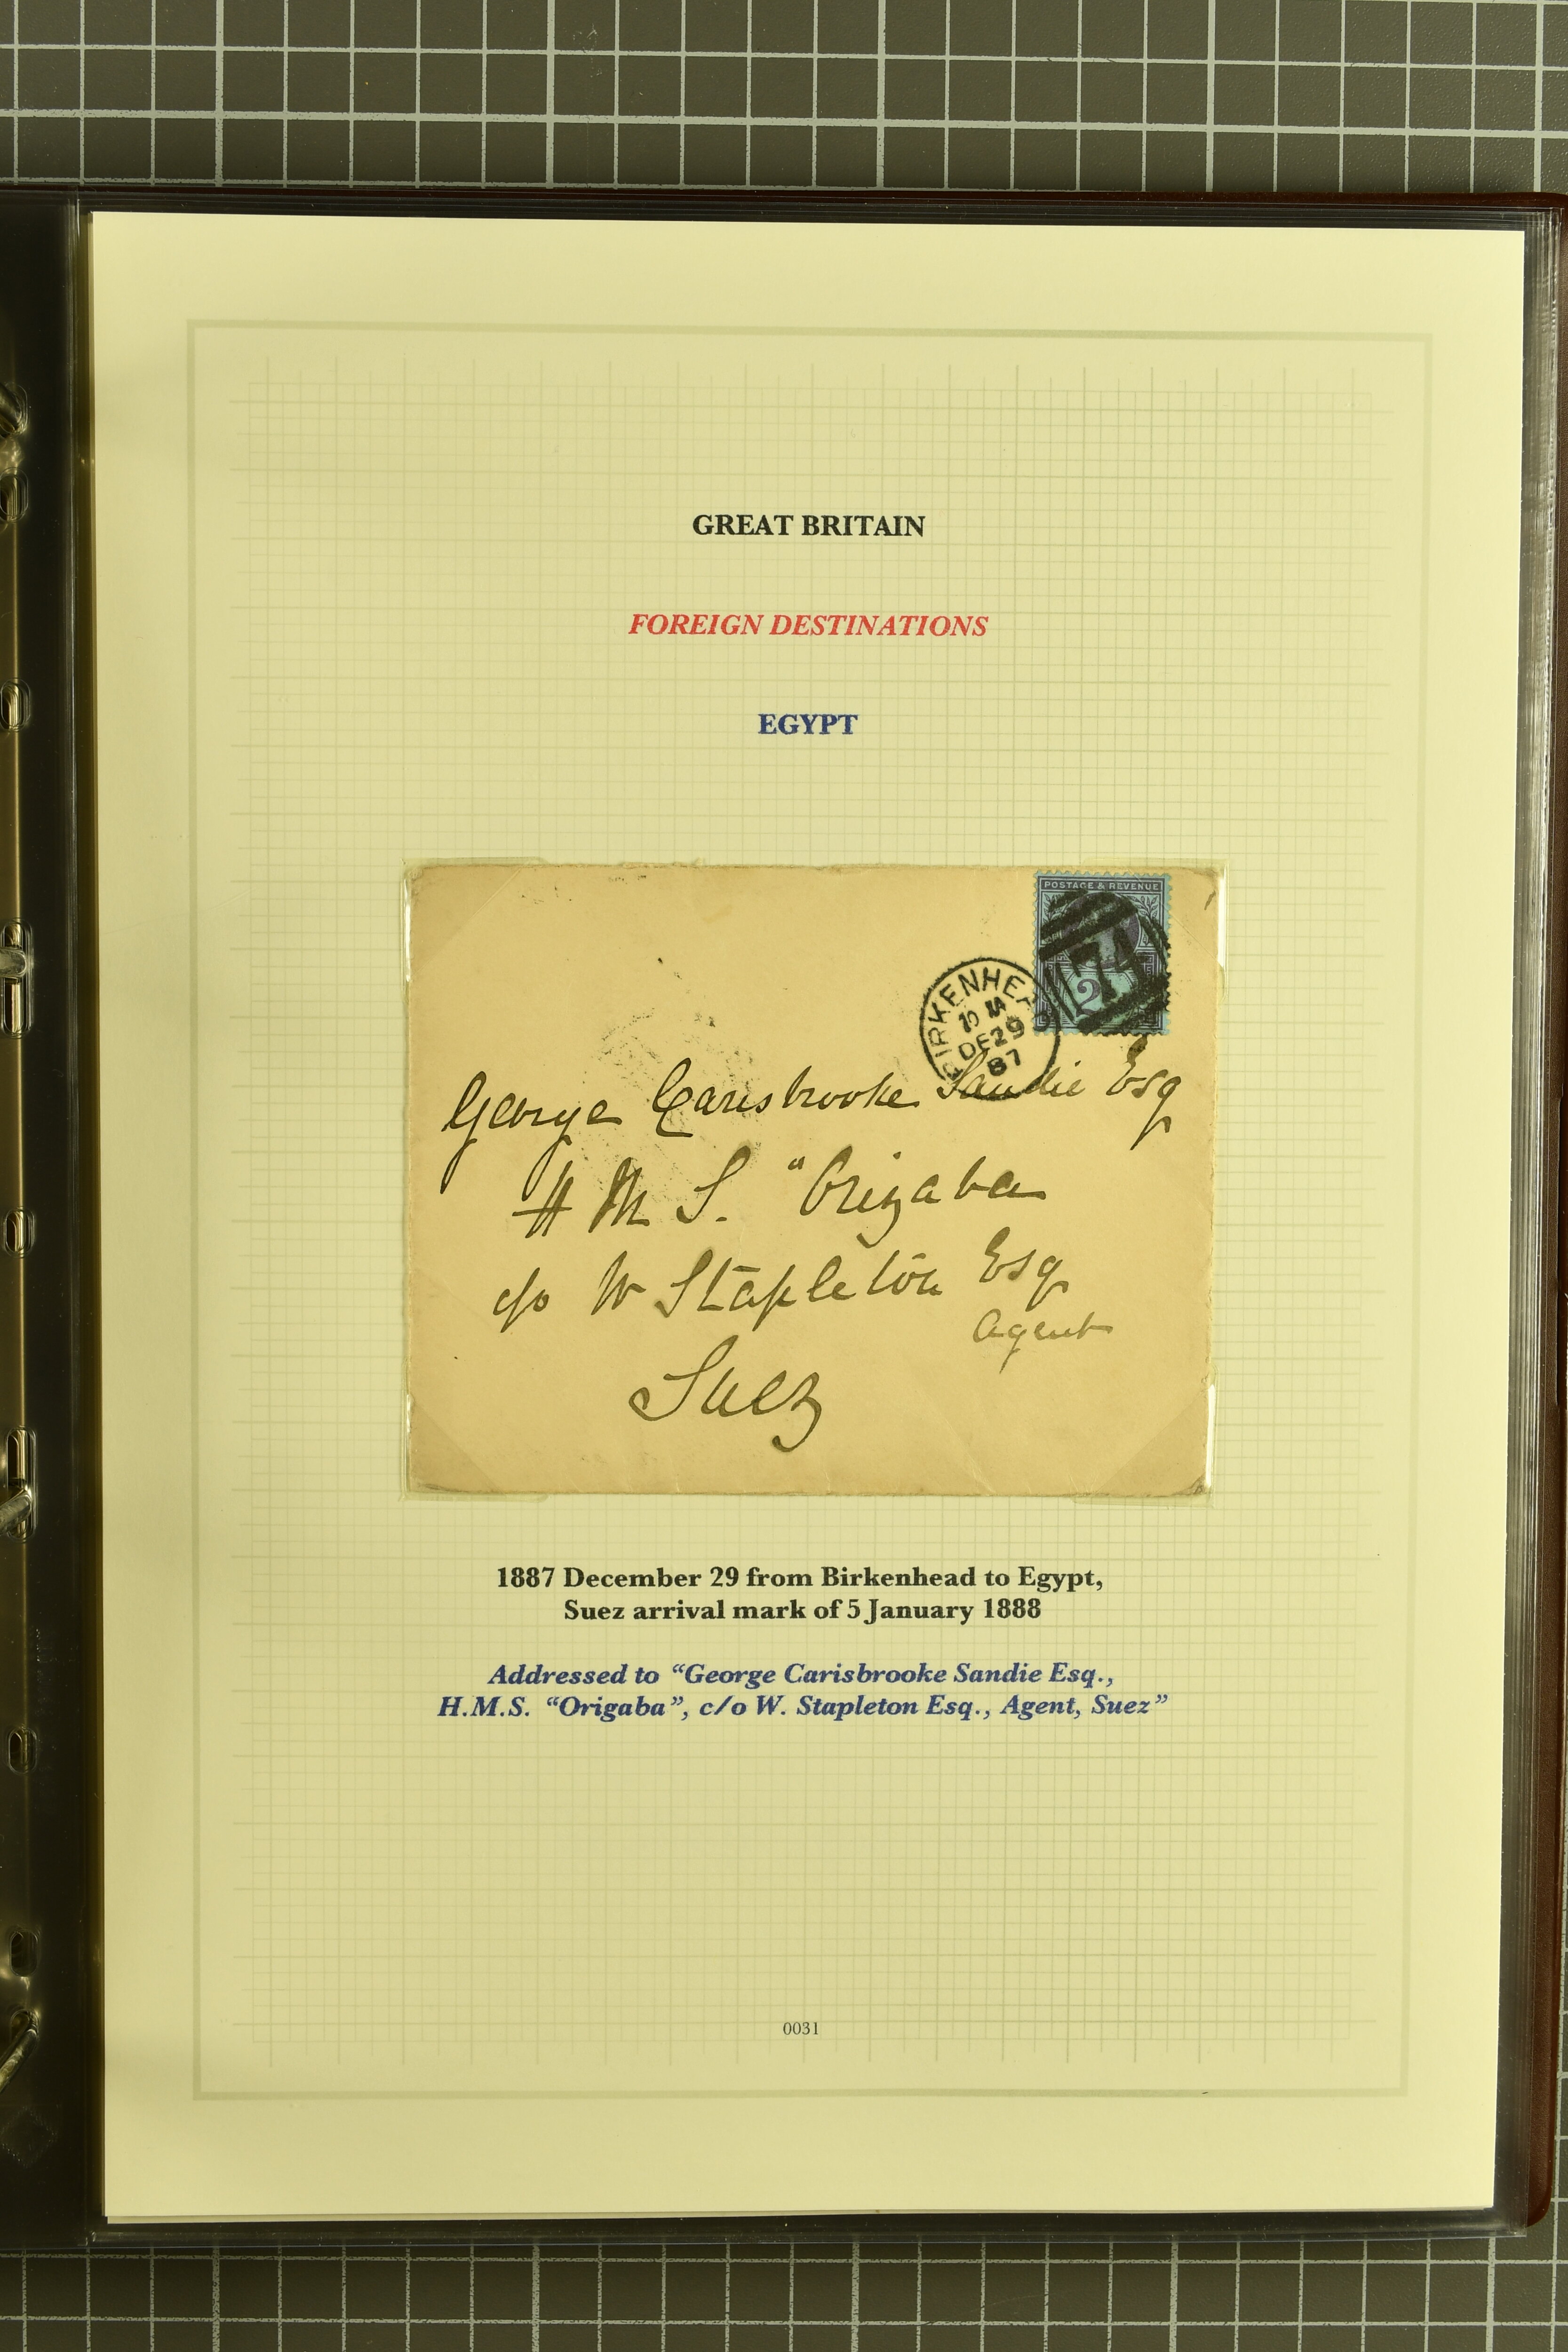 GREAT BRITAIN
FOREIGN DESTINATIONS
EGYPT
POSTAGE & REVENUE
74
2
BIRKENHEA
DE 29
87
George Carisbrooke Sandie Esq
H M S. "Orizaba
c/o W Stapleton Esq
Agent
Suez
1887 December 29 from Birkenhead to Egypt,
Suez arrival mark of 5 January 1888
Addressed to “George Carisbrooke Sandie Esq.,
H.M.S. “Origaba”, c/o W. Stapleton Esq., Agent, Suez”
0031